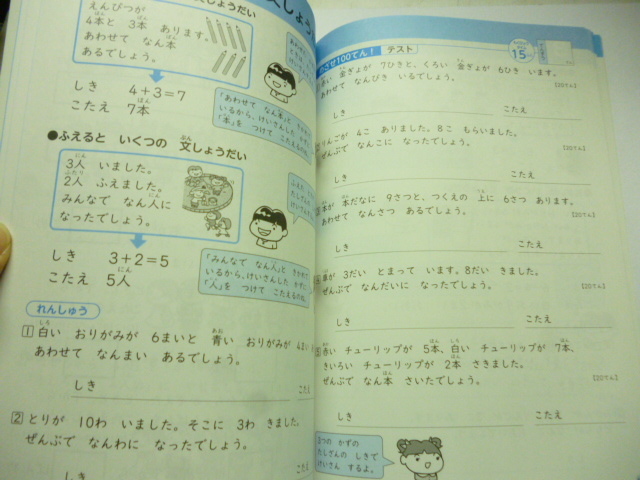 文しょうだい
えんぴつが
4本と 3本 あります。
あわせて なん本
あるでしょう。
しき 4+3=7
こたえ 7本
「あわせて なん本」と
いるから、けいさんした かずに
「本」を つけて こたえるのね。
●ふえると いくつの 文しょうだい
3人 いました。
2人 ふえました。
みんなで なん人に
なったでしょう。
しき 3+2=5
こたえ 5人
「みんなで なん人」と きかれて
いるから、けいさんした かずに
「人」を つけて こたえるのね。
れんしゅう
1 白い おりがみが 6まいと 青い おりがみが 4まい
あわせて なんまい あるでしょう。
しき こたえ
2 とりが 10わ いました。そこに 3わ きました。
ぜんぶで なんわに なったでしょう。
しき こたえ
めざせ100てん! テスト
15
赤い 金ぎょが 7ひきと、くろい 金ぎょが 6ぴき います。
あわせて なんびき いるでしょう。
【20てん】
しき こたえ
りんごが 4こ ありました。8こ もらいました。
ぜんぶで なんこに なったでしょう。
【20てん】
しき こたえ
本が 本だなに 9さつと、つくえの 上に 6さつ あります。
あわせて なんさつ あるでしょう。
【20てん】
しき こたえ
車が 3だい とまって います。8だい きました。
ぜんぶで なんだいに なったでしょう。
【20てん】
しき こたえ
赤い チューリップが 5本、白い チューリップが 7本、
きいろい チューリップが 2本 さきました。
ぜんぶで なん本 さいたでしょう。
【20てん】
しき こたえ
3つの かずの
たしざんの しきで
けいさん するよ。